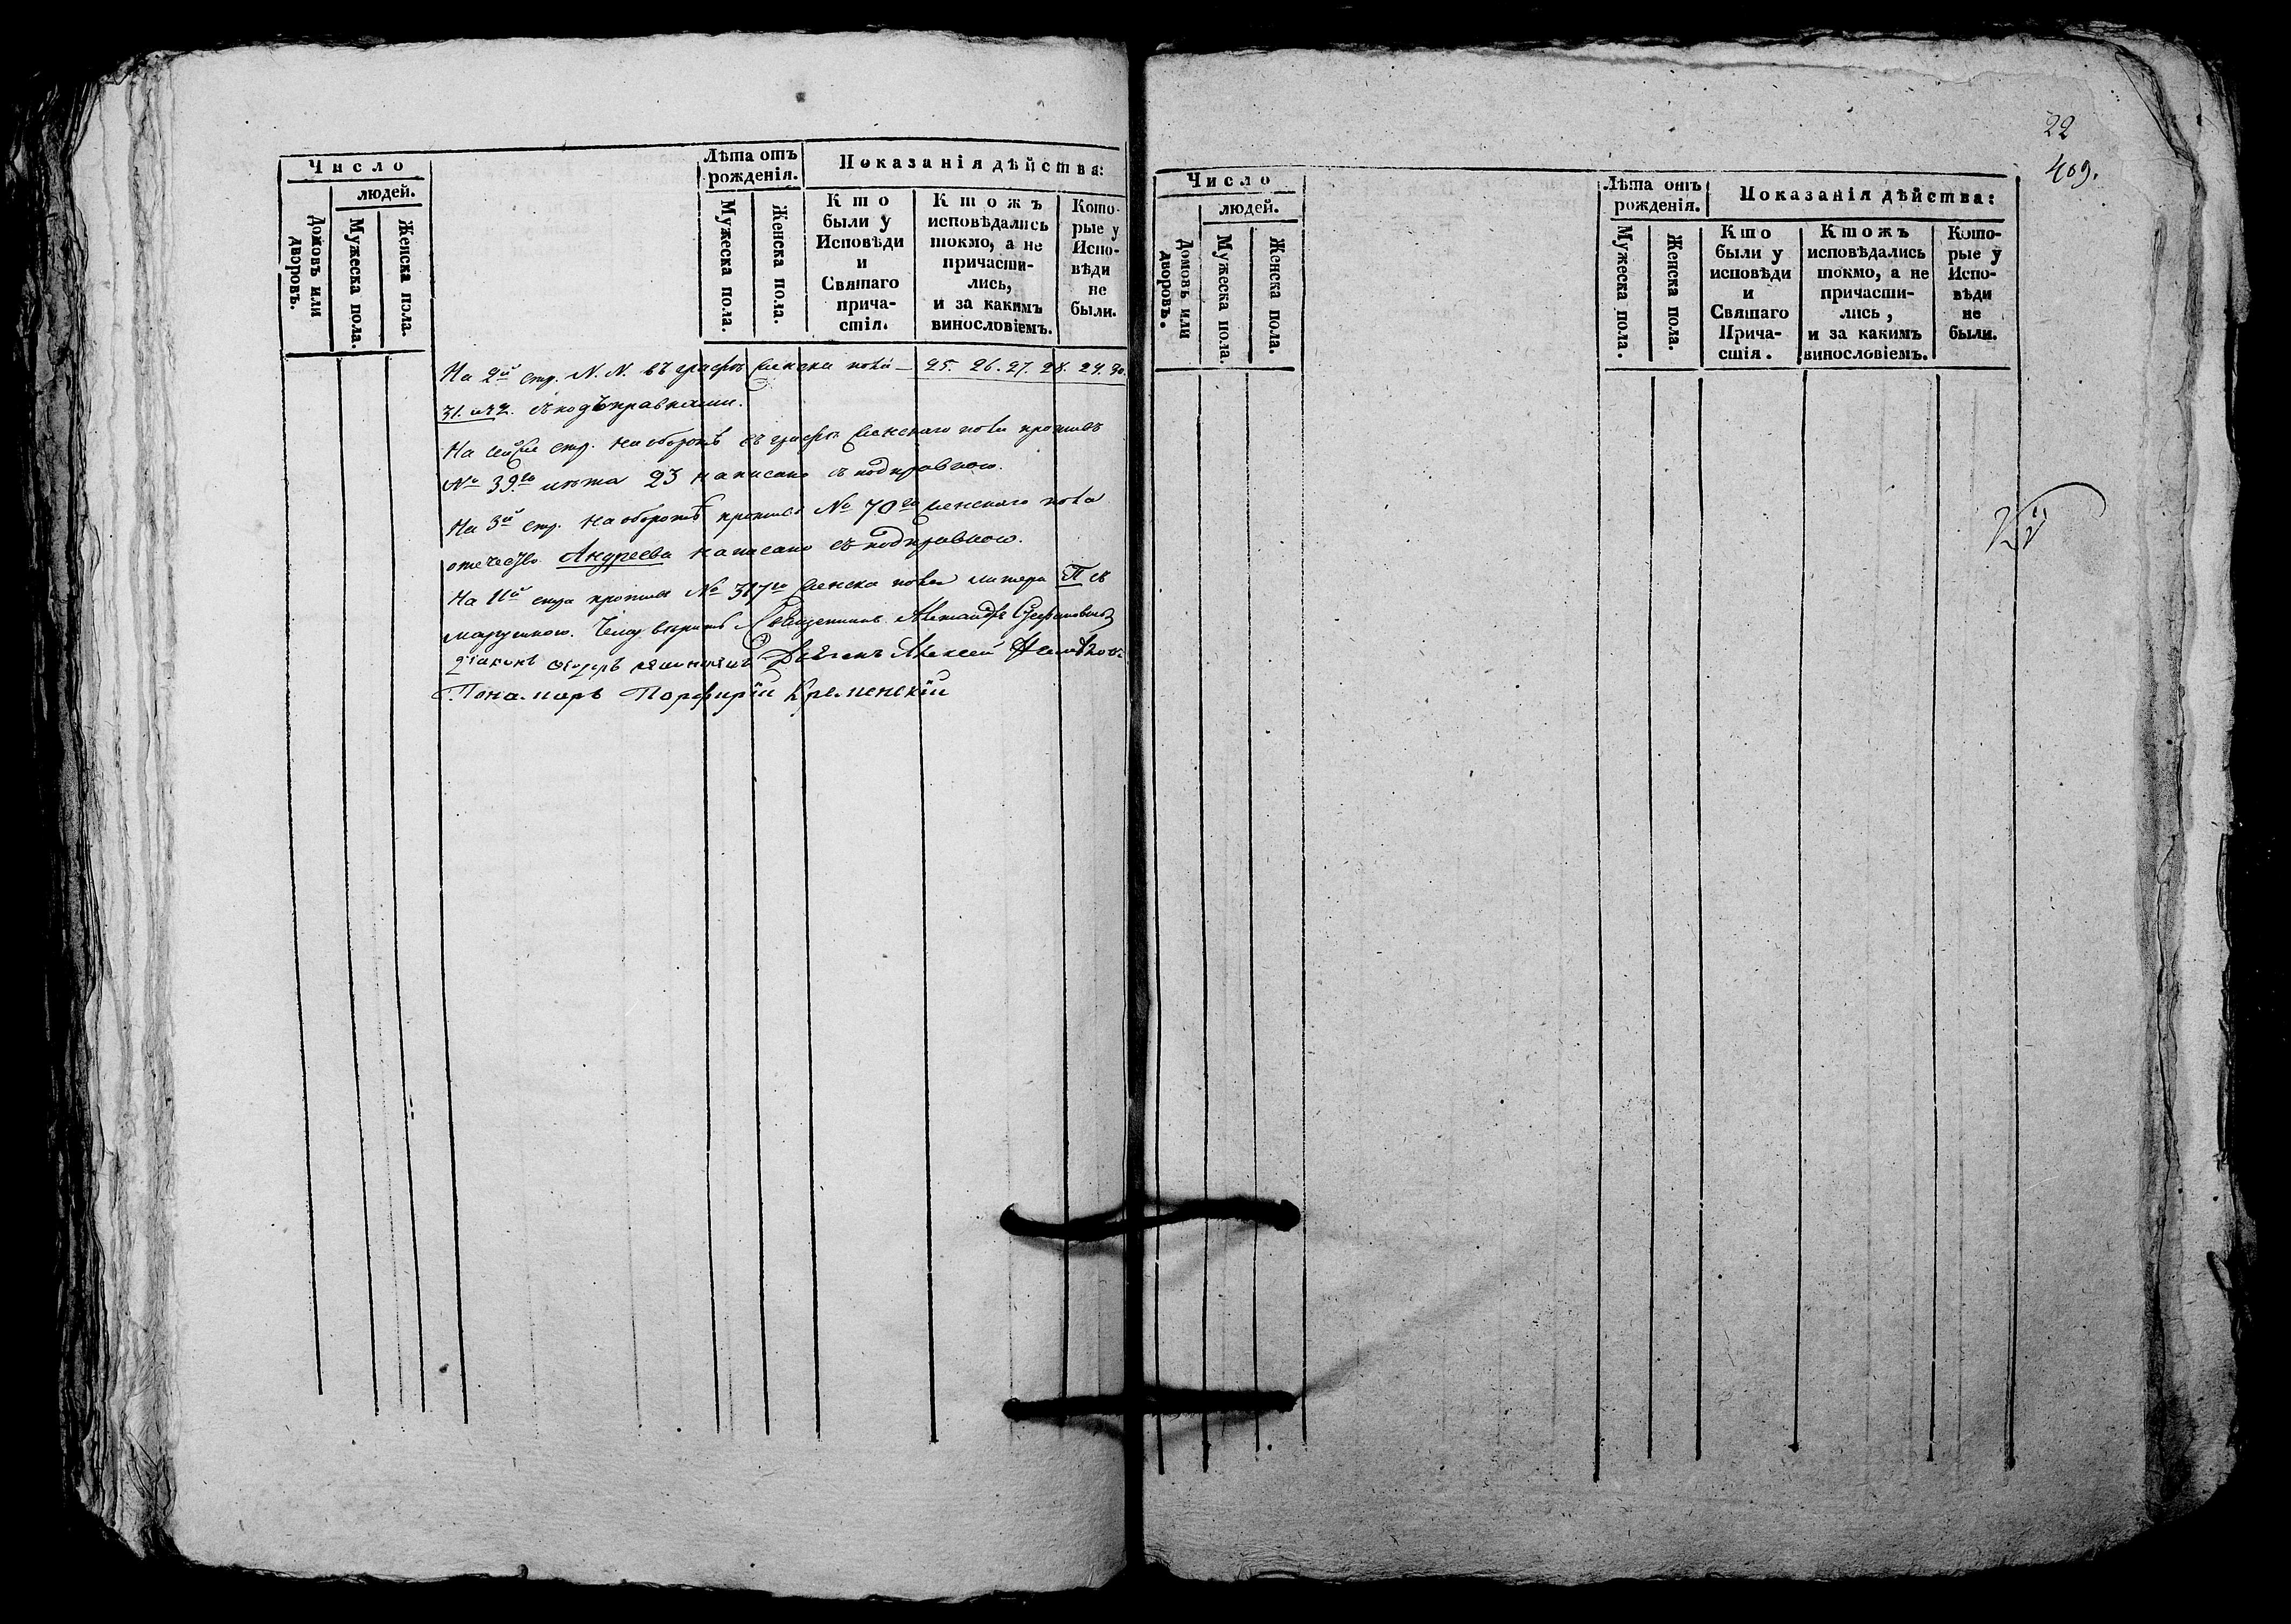 Число
людей.
Домовъ или дворовъ.
Мужеска пола.
Женска пола.
Лѣта отъ
рожденія.
Мужеска пола.
Женска пола.
Показанія дѣйства:
Кто
были у
Исповѣди
и
Святаго
прича-
стія.
Ктожъ
исповѣдались
токмо, а не
причасти-
лись,
и за какимъ
винословіемъ.
Кото-
рые у
Испо-
вѣди
не
были.
На 2й стр. N. N. въ графѣ женска пола — 25. 26. 27. 28. 29. 30.
31. и 32. съ подъправками.
На сей же стр. на оборотѣ въ графѣ женскаго пола противъ
№ 39го лѣта 23 написано съ подправкою.
На 3й стр. на оборотѣ противъ № 70го женскаго пола
отечество Андреева написано съ подправкою.
На 11й стр. противъ № 317го женска пола литера П съ
марушкою. Чему вѣрить Священникъ Александръ
Діаконъ Дьячекъ Алексей
Пономарь Порфирій Кременскій
22
409.
Число
людей.
Домовъ или дворовъ.
Мужеска пола.
Женска пола.
Лѣта отъ
рожденія.
Мужеска пола.
Женска пола.
Показанія дѣйства:
Кто
были у
исповѣди
и
Святаго
Прича-
стія.
Ктожъ
исповѣдались
токмо, а не
причасти-
лись,
и за какимъ
винословіемъ.
Кото-
рые у
Испо-
вѣди
не
были.